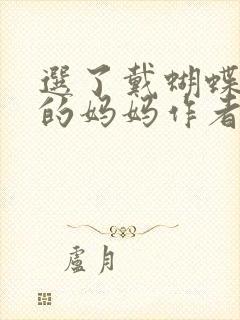 選了戴蝴蝶
的妈妈作者
盧月